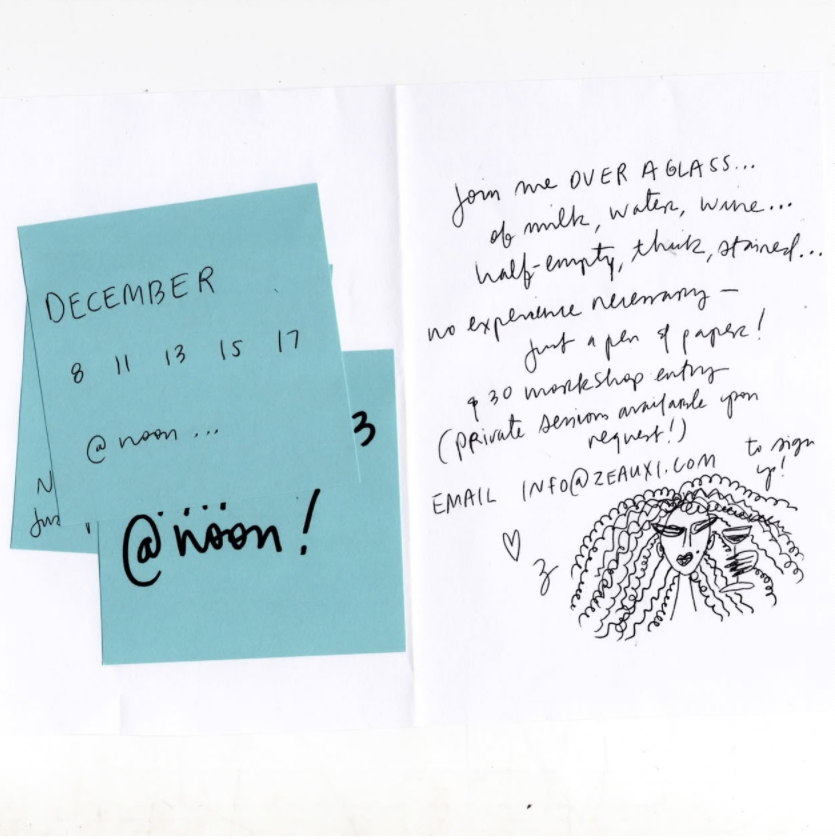 DECEMBER
8 11 13 15 17
@ noon ...
3
@ noon!
Join me OVER A GLASS...
of milk, water, wine...
half-empty, thick, stained...
no experience necessary —
Just a pen & paper!
$30 workshop entry
(private sessions available upon
request!)
EMAIL INFO@ZEAUXI.COM to sign
up!
♡
z